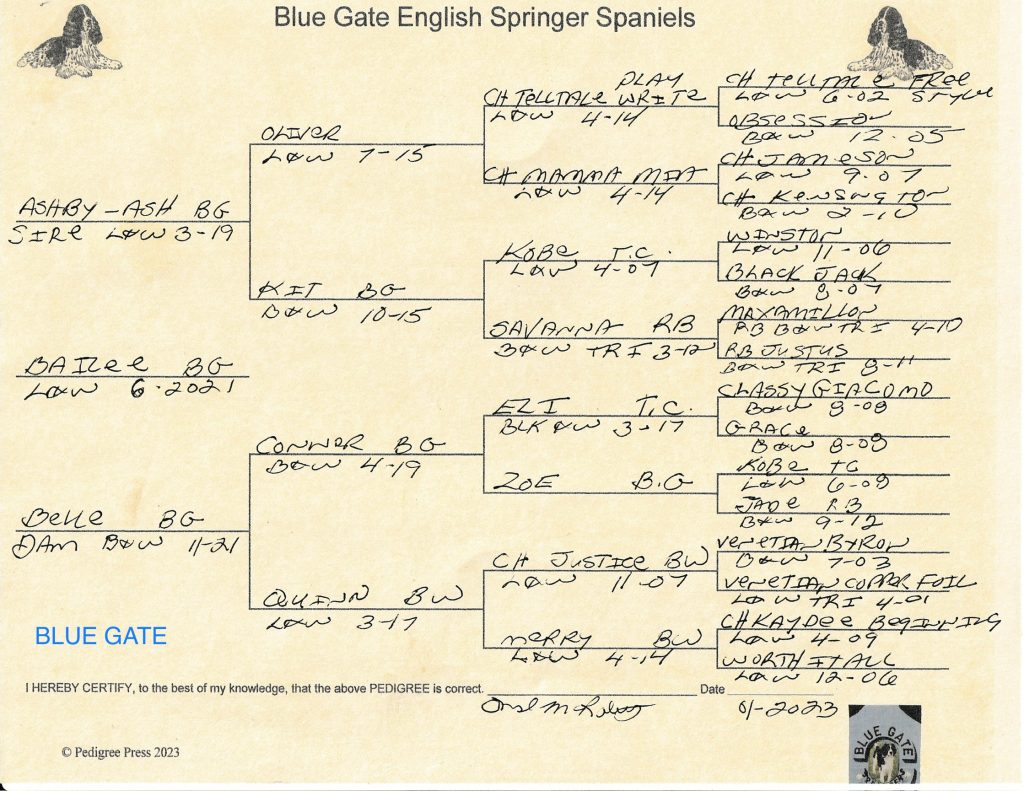 Blue Gate English Springer Spaniels
PLAY
CH TELLTALE WRITE
L&W 4-14
CH TELLTALE FREE
L&W 6-02 STYLE
OBSESSION
B&W 12-05
OLIVER
L&W 7-15
CH MAMMA MIA
L&W 4-14
CH JAMESON
L&W 9-07
CH KENSINGTON
B&W 2-10
ASHBY-ASH BG
SIRE L&W 3-19
KOBE T.C.
L&W 4-07
WINSTON
L&W 11-06
BLACK JACK
B&W 8-07
KIT BG
B&W 10-15
SAVANNA RB
B&W TRI 3-12
MAXAMILLON
RB B&W TRI 4-10
RB JUSTUS
B&W TRI 8-11
BAILEE BG
L&W 6-2021
ELI T.C.
BLK &W 3-17
CLASSY GIACOMO
B&W 8-08
GRACE
B&W 8-08
CONNOR BG
B&W 4-19
ZOE B.G
KOBE TC
L&W 6-08
JADE RB
B&W 9-12
BELLE BG
DAM B&W 11-21
CH JUSTICE BW
L&W 11-07
VENETIAN BYRON
B&W 7-03
VENETIAN COPPER FOIL
L&W TRI 4-01
QUINN BW
L&W 3-17
MERRY BW
L&W 4-14
CH KAYDEE BEGINNING
L&W 4-09
WORTH IT ALL
L&W 12-06
BLUE GATE
I HEREBY CERTIFY, to the best of my knowledge, that the above PEDIGREE is correct. Date
01-2023
BLUE GATE
© Pedigree Press 2023